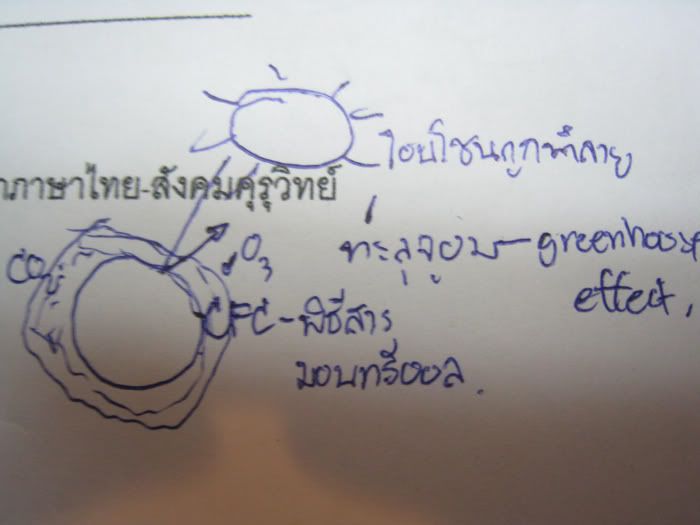 โอบโซนถูกทำลาย
าภาษาไทย-สังคมคุรุวิทย์
O3
CO2
ทะลุจูอบ - greenhouse
effect,
CFC - พิธีสาร
มอนทรีออล.